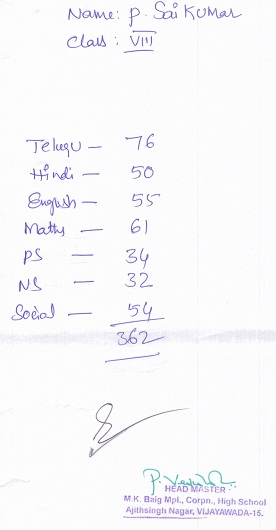 Name: P. Sai Kumar
Class: VIII
Telugu — 76
Hindi — 50
English — 55
Maths — 61
PS — 34
NS — 32
Social — 54
362
HEAD MASTER
M.K. Baig Mpl., Corpn., High School
Ajithsingh Nagar, VIJAYAWADA-15.